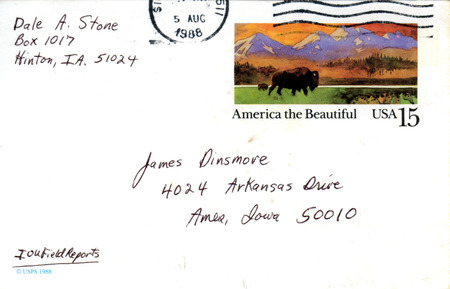 Dale A. Stone
Box 1017
Hinton, IA. 51024
5 AUG
1988
America the Beautiful USA 15
James Dinsmore
4024 Arkansas Drive
Ames, Iowa 50010
IOUfieldReports
© USPS 1988